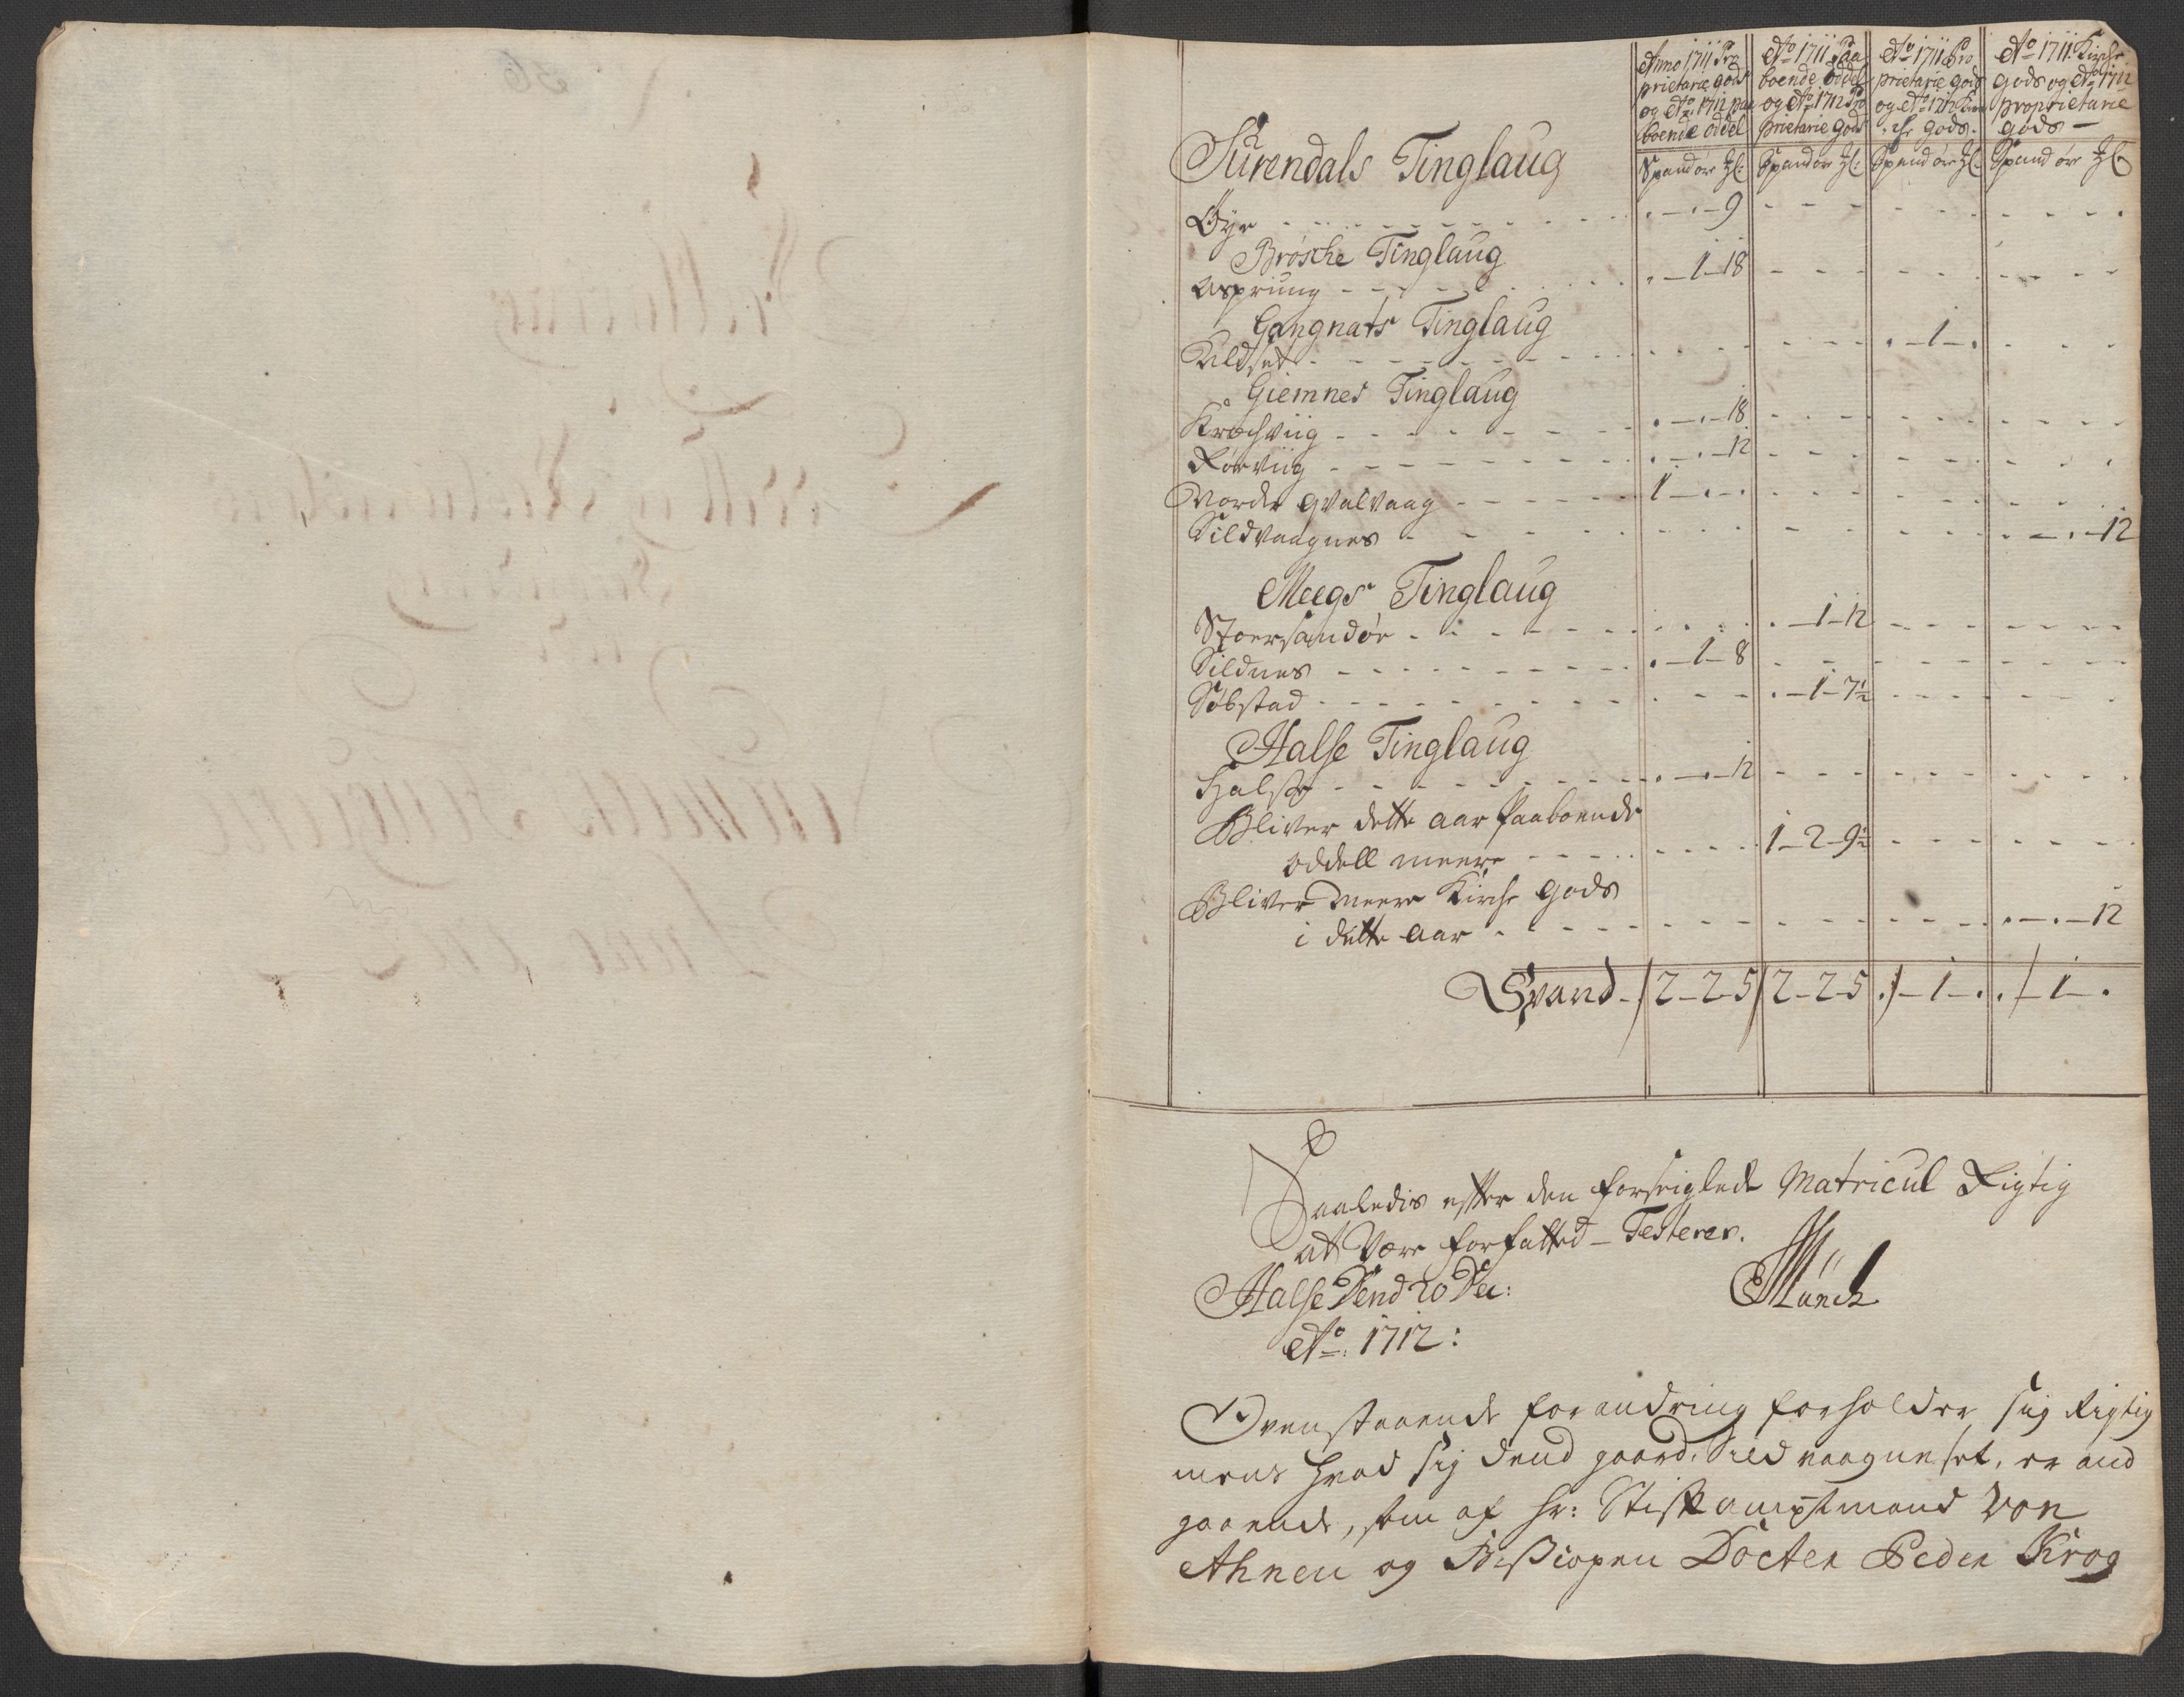 Anno 1711 Pro
prietarie gods
og Ao 1712 paa
boende oddel
Ao 1711 Paa
boende oddel
og Ao 1712 Pro
prietarie gods
Ao 1711 Pro
prietarie gods
og Ao 1712 Kir
che gods.
Ao 1711 Kirche
gods og Ao 1712
proprietarie
gods
Surendals Tinglaug
Spand ør Spand ør Spand ør Spand ør
Øye - - - . - . - 9
Brøsche Tinglaug
Asprung - - - . - 1 - 18
Gangnats Tinglaug
Kildset - - - . - 1 - .
Giemnes Tinglaug
Krochviig - - - . - . - 18
Rørviig - - - . - . - 12
Nordr Qvalvaag - - - 1 - . - .
Sildvaagnes - - - . - . - 12
Meegs Tinglaug
Stoersandør - - - . - 1 - 12
Sildnes - - - . - 1 - 8
Søbstad - - - . - 1 - 7½
Halse Tinglaug
Halse - - - . - . - 12
Bliver dette aar Paaboende
oddell meere - - - 1 - 2 - 9½
Bliver meere Kirche gods
i dette aar - - - . - . - 12
Spand - / 2 - 2 - 5 / 2 - 2 - 5 . / - 1 - . . / - 1 - .
Saaledis efter den forseiglede Matricul Rigtig
at være forfatted - Testerer.
Halse Dend 20 Dec:
Ao: 1712:
Münch
Ovenstaaende forandring forholder sig Rigtig
mens hvad sig dend gaard Sildvaagneset, er and
gaaende, som af Hr: Stiftamptmand Von
Ahnen og Bißiopen Docter Peder Krog